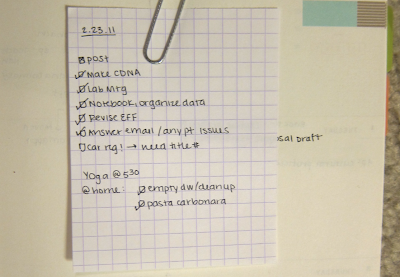 2.23.11
post
Make CDNA
Lab Mtg
Notebook, organize data
Revise EFF
Answer email/any pt issues
Car reg! → need title #
sal Draft
Yoga @ 530
@home: empty dw/cleanup
pasta carbonara